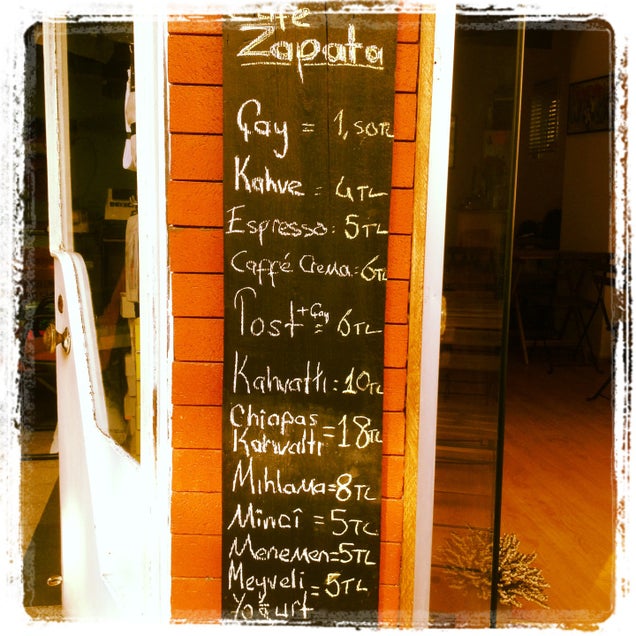 Cafe
Zapata
Çay = 1,50TL
Kahve = 4TL
Espresso: 5TL
Caffé Crema: 6TL
Tost +Çay = 6TL
Kahvaltı: 10TL
Chiapas
Kahvaltı = 18TL
Mıhlama = 8TL
Mincî = 5TL
Menemen = 5TL
Meyveli = 5TL
Yoğurt